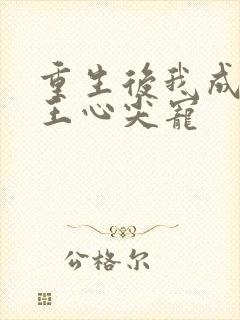 重生後我成
王心尖寵
公格尔